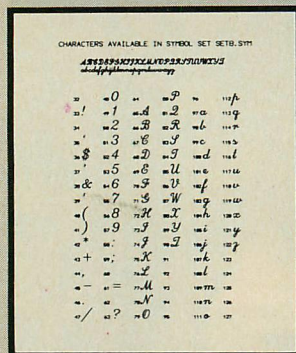 CHARACTERS AVAILABLE IN SYMBOL SET SETB.SYM
ABCDEFGHIJKLMNOPQRSTUVWXYZ
32 48 0 64 80 P 96 112 p
33 ! 49 1 65 A 81 Q 97 a 113 q
34 50 2 66 B 82 R 98 b 114 r
35 ' 51 3 67 C 83 S 99 c 115 s
36 $ 52 4 68 D 84 T 100 d 116 t
37 ' 53 5 69 E 85 U 101 e 117 u
38 & 54 6 70 F 86 V 102 f 118 v
39 ' 55 7 71 G 87 W 103 g 119 w
40 ( 56 8 72 H 88 X 104 h 120 x
41 ) 57 9 73 I 89 Y 105 i 121 y
42 * 58 : 74 J 90 Z 106 j 122 z
43 + 59 ; 75 K 91 107 k 123
44 , 76 L 92 108 l
45 - 61 = 77 M 93 109 m 125
46 . 62 78 N 94 110 n 126
47 / 63 ? 79 O 95 111 o 127